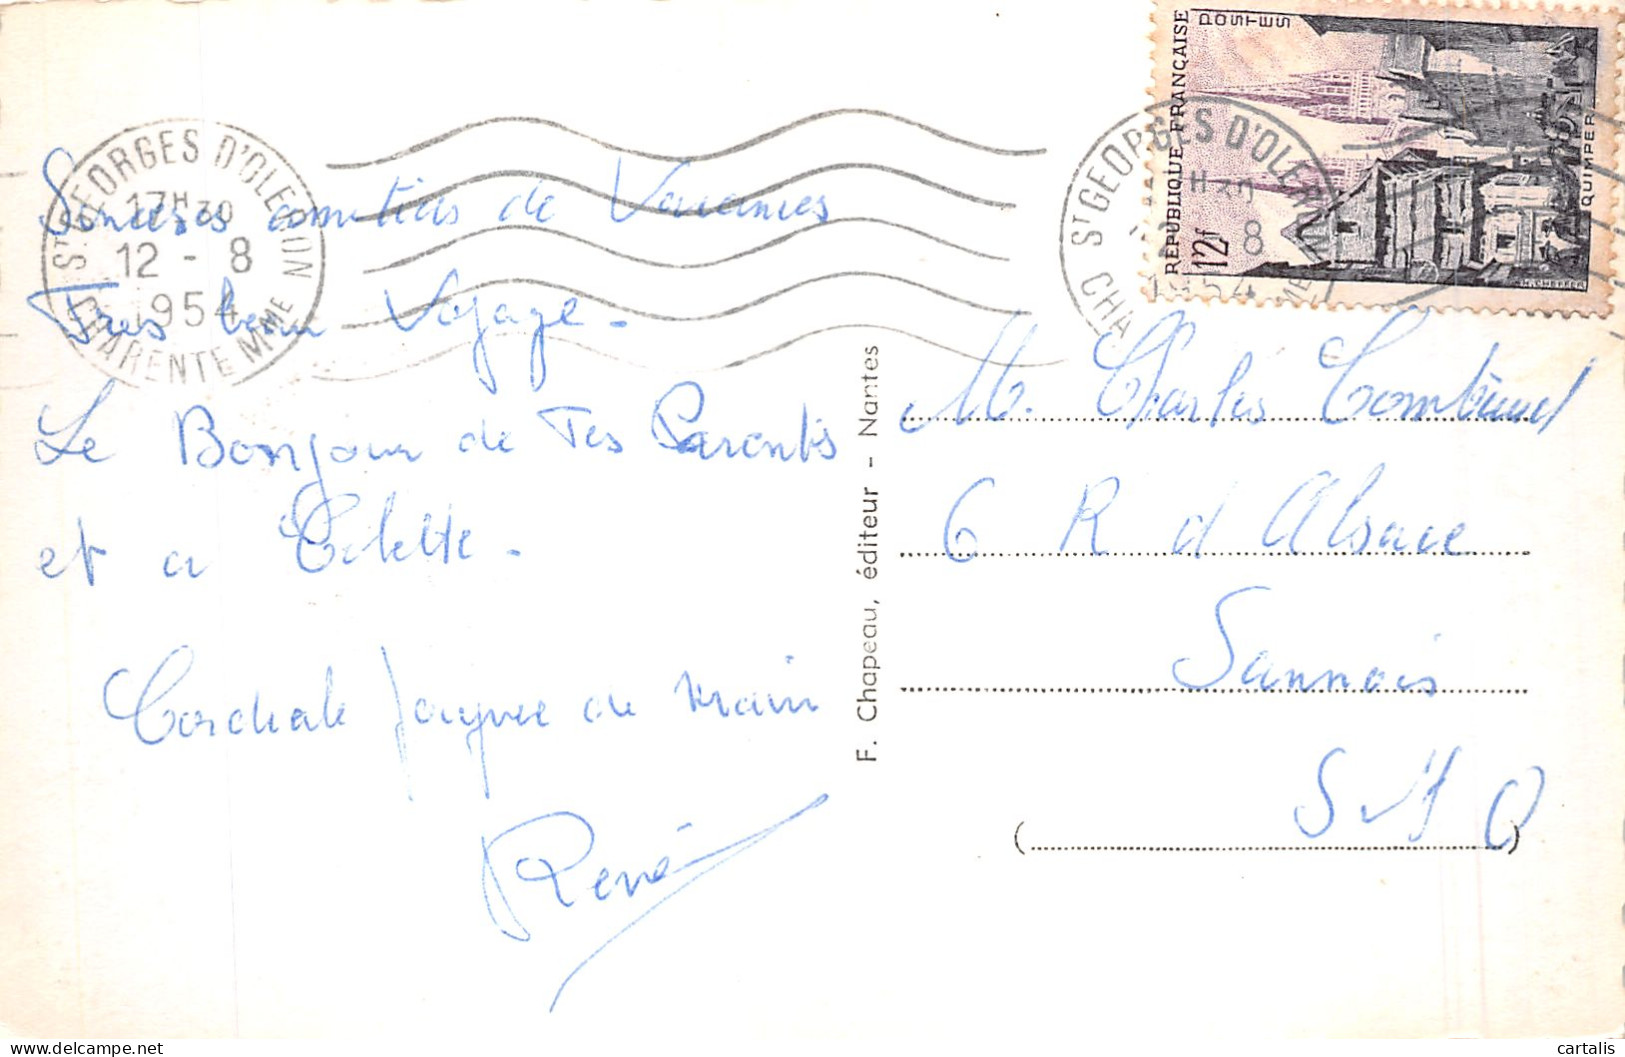 St GEORGES D'OLERON
17H30
12 - 8
1954
CHARENTE Mme
Sincères amitiés de Vacances
Tres beau Voyage -
Le Bonjour de Tes Parents
et a Colette -
Cordiale poignee de main
René
F. Chapeau, éditeur - Nantes
REPUBLIQUE FRANÇAISE
POSTES
12f
QUIMPER
St GEORGES D'OLERON
H30
8
1954
CHA
M. Charles
6 R d Alsace
Sannois
S et O
cartalis